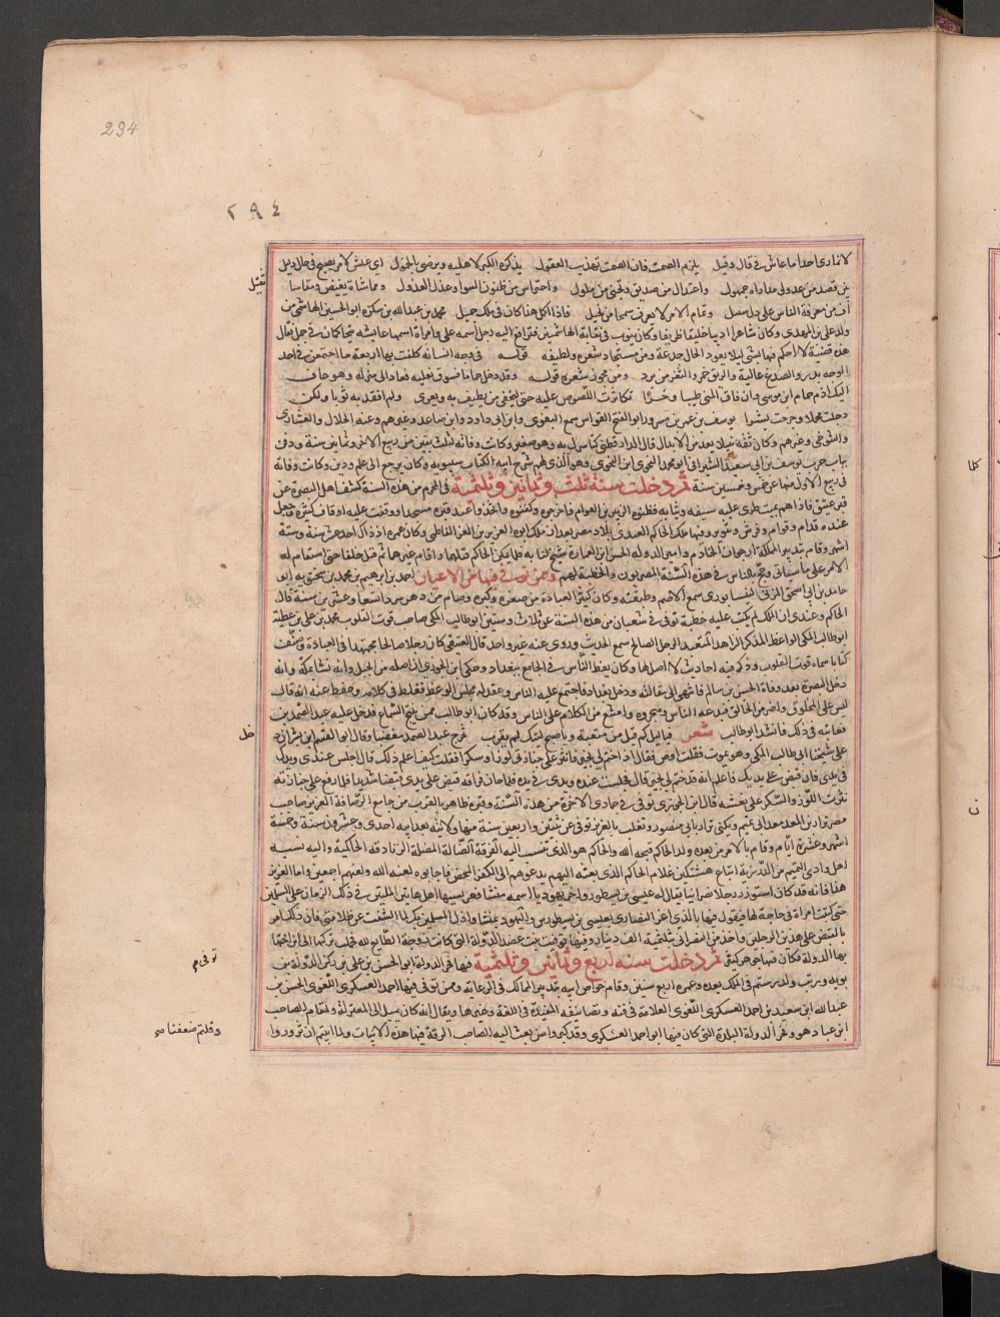 234
٢٩٤
لا تمارى احدا ما عاش فى قال وقيل يلزم الصمت فان الصمت تهذيب العقول يذكره الكبر لاهليه ويرضى بالخمول اى عيش لامر يصبح فى حال
بين قصد من عدو لى مداواة جهول واعتدال من صديق وتجنى من ملول واحتراس من ظنون السوء وعذل العذول ومماشاة بغيض ومقاسا
اف من معرفة الناس على كل سبيل وتمام الامر لا يعرف سمحا من بخيل فاذا اكمل هذا كان فى ملك جليل محمد بن عبدالله بن سكره ابو الحسين الهاشمى من
ولد على بن المهدى وكان شاعرا اديبا خليقا ظريفا وكان ينوب فى نقابة الهاشميين فترافع اليه رجل اسمه على وامراة اسمها عايشه يتحاكمان فى جمل فقال
هذه قضية لا احكم فيها بشى ليلا يعود الحال جدعة ومن مستجاد شعره ولطيفه قوله فى وجه انسانة كلفت بها اربعة ما اجتمعن فى احد
الوجه بدر والصدغ غالية والريق خمر والثغر من برد ومن مجون شعره قوله وقد دخل حاما فسرق نعليه فعاد الى منزله وهو حاف
اليك اذم حمام ابن موسى وان فاق المنى طيبا وحرا تكاثرت اللصوص عليه حتى ليحفى من يطيف به ويعرى ولم افقد به ثوبا ولكن
دخلت محمدا وخرجت بشرا يوسف بن عمر بن مسرور ابو الفتح القواس سمع البغوى وابن ابى داود وابن صاعد وغيرهم وعنه الخلال والعشارى
والتنوخى وغيرهم وكان ثقة نبيلا يعد من الابدال قال الدارقطنى كنا نتبرك به وهو صغير وكانت وفاته لثلث بقين من ربيع الاخر وثمانين سنة ودفن
بباب حرب يوسف بن ابى سعيد السيرافى ابو محمد النحوى ابن النحوى وهو الذى تمم شرح ابيه لكتاب سيبويه وكان يرجع الى علم ودين وكانت وفاته
فى ربيع الاول منها عن خمس وخمسين سنة ثم دخلت سنة ثلث وثمانين وثلثمية فى المحرم من هذه السنة كشف اهل البصرة عن
قبر عتيق فاذا هم بميت طرى عليه سيفه وثيابه فظنوه الزبير بن العوام فاخرجوه وكفنوه واتخذوا عند قبره مسجدا ووقفت عليه اوقاف كثيرة وجعل
عنده قدام وقوام وفرش وتنوير وفيها ملك الحاكم العبيدى بلاد مصر بعد ان ملك ابوه العزيز بن المعز الفاطمى وكان عمره اذ ذاك احدى عشرة سنة وستة
اشهر وقام بتدبير المملكة ارجوان الخادم وامين الدوله الحسن ابن عمار
الامر على ما سياتى وحج بالناس فى هذه السنة المصريون والخطبة لهم وممن توفى فيها من الاعيان احمد بن ابراهيم بن محمد بن سختويه ابو
حامد بن ابى اسحق المزكى النيسابورى سمع الاصم وطبقته وكان كثير العبادة من صغره وكبره وصام من دهره سردا تسعا وعشرين سنة قال
الحاكم وعندى ان الملك لم يكتب عليه خطية توفى فى شعبان من هذه السنة عن ثلاث وستين ابو طالب المكى صاحب قوت القلوب محمد بن على بن عطية
ابو طالب المكى الواعظ المذكر الزاهد المتعبد الرجل الصالح سمع الحديث وروى عنه غير واحد قال العتيقى كان رجلا صالحا مجتهدا فى العبادة وصنف
كتابا سماه قوت القلوب وذكر فيه احاديث لا اصل لها وكان يعظ الناس فى الجامع ببغداد وحكى ابن الجوزى ان اصله من الجبل وانه نشا بمكة وانه
دخل البصرة بعد وفاة الحسن بن سالم فانتمى الى مقالته ودخل بغداد فاجتمع عليه الناس وعقد له مجلس الوعظ فغلط فى كلامه وحفظ عنه انه قال
ليس على المخلوق اضر من الخالق فبدعه الناس وهجروه وامتنع من الكلام على الناس وقد كان ابو طالب ممن يبيح السماع فدخل عليه عبد الصمد بن
فعاتبه فى ذلك فانشد ابو طالب شعر فيا ليل كم فيك من متعة ويا صبح ليتك لم تقرب فخرج عبد الصمد مغضبا وقال ابو القسم ابن بشران دخلت
على شيخنا ابى طالب المكى وهو يموت فقلت اوص فقال اذا ختم لى بخير فانثر على جنازتى لوزا وسكرا فقلت كيف اعلم ذلك قال اجلس عندى ويدك
فى يدى فان قبضت على يدك فاعلم انه قد ختم لى بخير قال فجلست عنده ويدى فى يده فلما حان فراقه قبض على يدى قبضا شديدا فلما رفع على جنازته
نثرت اللوز والسكر على نعشه قال ابن الجوزى توفى فى جمادى الاخرة من هذه السنة وقبره ظاهر بالقرب من جامع الرصافة العزيز صاحب
مصر نزار بن المعد معد ابى تميم ويكنى نزار بابى منصور ويلقب بالعزيز توفى عن ثنتين واربعين سنة منها ولايته بعد ابيه احدى وعشرون سنة وخمسة
اشهر وعشرة ايام وقام بالامر من بعده ولده الحاكم قبحه الله والحاكم هو الذى تنسب اليه الفرقة الضالة المضلة الزنادقه الحاكمية واليه نسبه
اهل وادى التيم من الدرزية اتباع هستكين غلام الحاكم الذى بعثه اليهم يدعوهم الى الكفر المحض فاجابوه لعنه الله ولعنهم اجمعين واما العزيز
هذا فانه قد كان استوزر رجلا نصرانيا يقال له عيسى بن نسطورس واخر يهوديا اسمه منشا فعز بسببهما اهل هاتين الملتين فى ذلك الزمان على المسلمين
حتى كتبت امراة فى حاجة لها فيقول فيها بالذى اعز النصارى بعيسى بن نسطورس واليهود بمنشا واذل المسلمين بك لما كشفت عن ظلامتى فان ذلك امر
بالقبض على هذين الرجلين واخذ من النصرانى ثلثمية الف دينار وفيها توفيت بنت عضد الدولة التى كانت زوجة الطايع لله فحملت تركتها الى ابن اخيها
بها الدولة فكان فيها جوهر كثير ثم دخلت سنه اربع وثمانين وثلثمية فيها فخر الدولة ابو الحسن بن على بن ركن الدولة بن
بويه ورتب ولده رستم فى الملك بعده وعمره اربع سنين وقام خواص ابيه بتدبير الممالك فى الرعايا وممن توفى فيها احمد العسكرى اللغوى الحسن بن
عبدالله ابن سعيد بن احمد العسكرى اللغوى العلامة فى فنه وتصانيفه المفيدة فى اللغة وغيرها ويقال انه كان يميل الى المعتزلة ولما قدم الصاحب
ابن عباد هو وفخر الدولة البلدة التى كان فيها ابو احمد العسكرى وقد كبر واسن بعث اليه الصاحب الرقة فيها هذه الابيات ولما ابيتم ان تزوروا
ثقيل
توفى
وقلتم ضعفنا